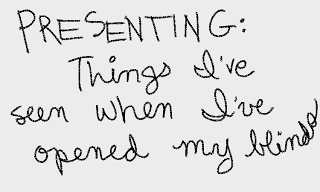 PRESENTING:
Things I've
seen when I've
opened my blinds